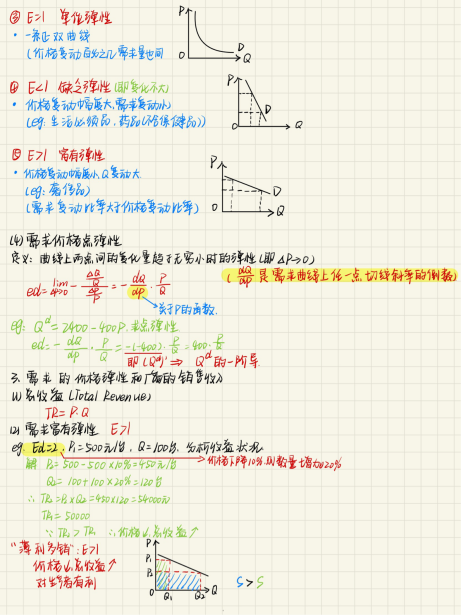 ③ E=1 单位弹性
• 一条正双曲线
(价格变动百分之几需求量也同
P
D
O
Q
④ E<1 缺乏弹性 (即变化不大)
• 价格变动幅度大,需求变动小
(eg: 生活必须品,药品(不含保健品))
P
D
O
Q
⑤ E>1 富有弹性
• 价格变动幅度小,Q变动大
(eg: 奢侈品)
(需求变动比率大于价格变动比率)
P
D
O
Q
(4) 需求价格点弹性
定义: 曲线上两点间的变化量趋于无穷小时的弹性 (即 ΔP→0)
ed= lim ΔP→0 - (ΔQ/Q)/(ΔP/P) = - dQ/dP · P/Q
( dQ/dP 是需求曲线上任一点切线斜率的倒数)
关于P的函数.
eg: Q^d = 2400-400P. 求点弹性
ed = - dQ/dP · P/Q = -(-400) · P/Q = 400 · P/Q
即 (Q^d)' ⇒ Q^d 的一阶导
3. 需求的价格弹性和厂商的销售收入
(1) 总收益 (Total Revenue)
TR = P·Q
(2) 需求富有弹性 E>1
eg. Ed=2, P₁=500元/台, Q=100台, 分析收益状况
价格下降10%,则数量增加20%
解 P₂=500-500×10%=450元/台
Q₂=100+100×20%=120台
∴ TR₂=P₂×Q₂=450×120=54000元
TR₁=50000
∵ TR₂>TR₁ ∴ 价格↓总收益↑
"薄利多销": E>1
价格↓总收益↑
对生产者有利
P
P₁
P₂
O
Q₁
Q₂
Q
S > S